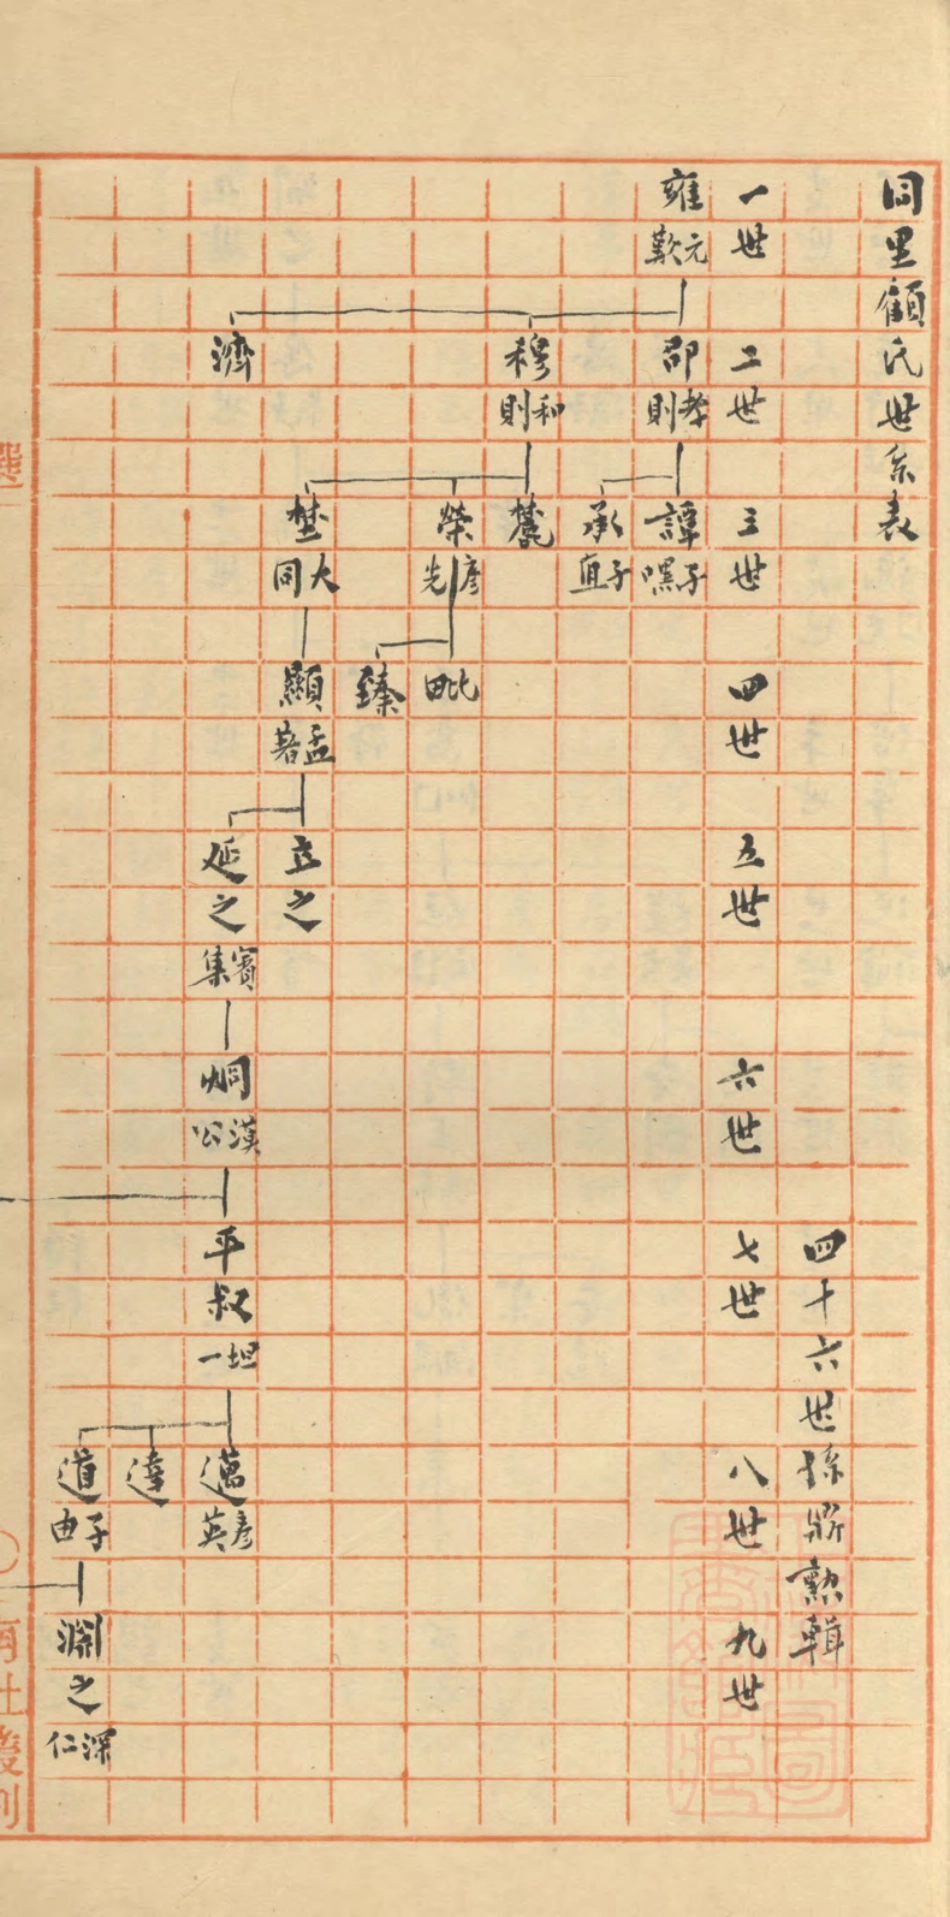 同里顧氏世系表
四十六世孫鼎勲輯
一世
二世
三世
四世
五世
六世
七世
八世
九世
雍 元歎
邵 孝則
穆 和則
濟
譚 子嘿
承 子直
榮 彥先
大同
毗
臻
顯 孟著
立之
延之 賓集
炯 漢公
平叔 坦一
邁 彥英
達
道 子由
淵之 深仁